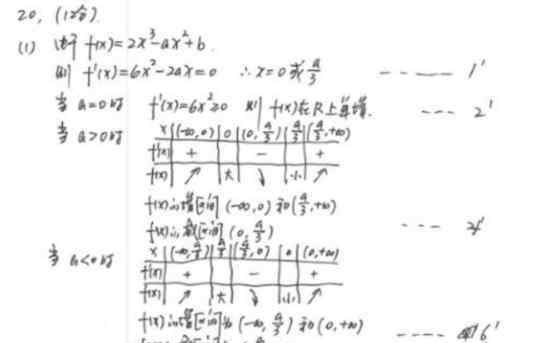 20. (12分)
(1) 由于 f(x)=2x³-ax²+b
则 f'(x)=6x²-2ax=0 ∴x=0或a/3 ------ 1'
当 a=0时 f'(x)=6x²≥0 则 f(x)在R上单增. --- 2'
当 a>0时 x | (-∞,0) | 0 | (0,a/3) | a/3 | (a/3,+∞)
f'(x) | + | | - | | +
f(x) | ↗ | 大 | ↘ | 小 | ↗
f(x)的增区间 (-∞,0)和(a/3,+∞)
f(x)的减区间 (0,a/3) --- 4'
当 a<0时 x | (-∞,a/3) | a/3 | (a/3,0) | 0 | (0,+∞)
f'(x) | + | | - | | +
f(x) | ↗ | 大 | ↘ | 小 | ↗
f(x)的增区间为 (-∞,a/3)和(0,+∞) ---- 6'